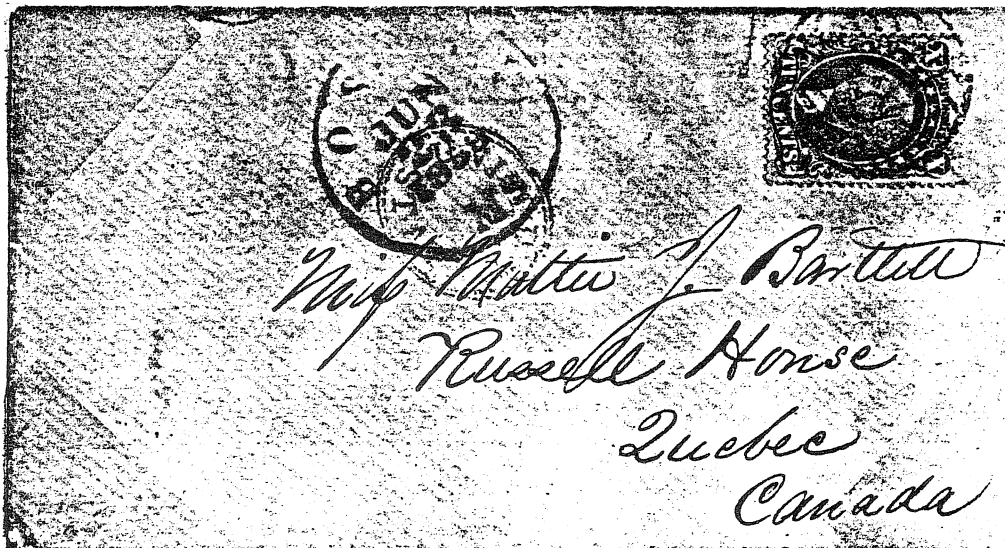 JUN
Miss Mattie J. Bartlett
Russell House
Quebec
Canada